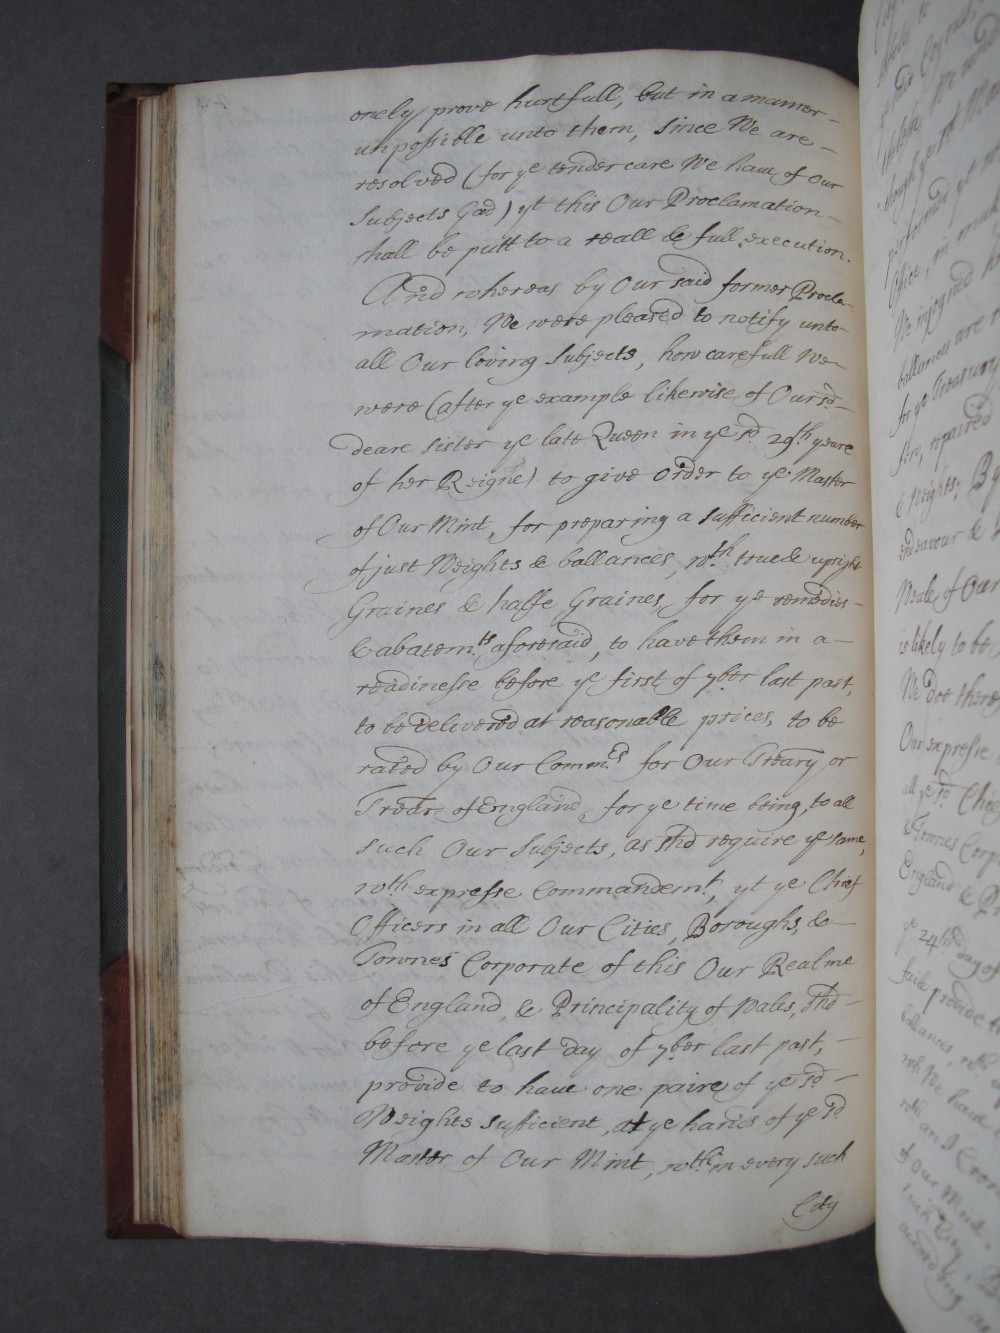 onely prove hurtfull, but in a manner
unpossible unto them, since We are
resolved (for ye tender care We have of Our
Subjects Good) yt this Our Proclamation
shall be putt to a reall & full execution.
And whereas by Our said former Procla-
mation, We were pleased to notify unto
all Our loving Subjects, how carefull We
were (after ye example likewise of Our sd
deare sister ye late Queen in ye sd 29th yeare
of her Reigne) to give order to ye Master
of Our Mint, for preparing a sufficient number
of just Weights & ballances, wth true & upright
Graines & halfe Graines, for ye remedies
& abatemts aforesaid, to have them in a
readinesse before ye first of 7ber last past,
to be delivered at reasonable prices, to be
rated by Our Commrs for Our Treary or
Trear of England, for ye time being, to all
such Our Subjects, as shd require ye same,
wth expresse Commandemt, yt ye Chief
Officers in all Our Cities, Boroughs, &
Townes Corporate of this Our Realme
of England, & Principality of Wales, shd
before ye last day of 7ber last past,
provide to have one paire of ye sd
Weights sufficient, at ye hands of ye sd
Master of Our Mint, wthin every such
City
is likely to be
We doe
Our expresse
all ye sd
England &
ye 24th day of
provide
We have
of Our Mint
such City,
according